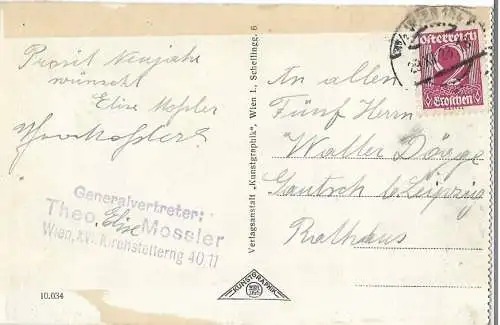 Prosit Neujahr
wünscht
Elise Mossler
Generalvertreter:
Theo. Mossler
Else
Wien, XVI. Kirchstetterng 40/11
10.034
Verlagsanstalt „Kunstgraphik", Wien I., Schellingg. 6
KUNSTGRAPHIK
Österreich
2
Groschen
An allen
Fünf Herrn
Walter
Gautsch b. Leipzig
Rathaus